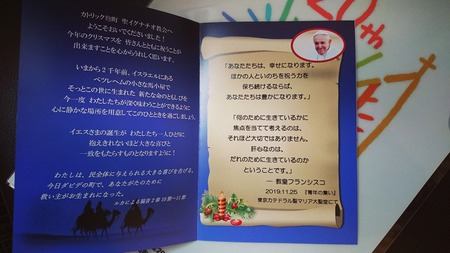 カトリック麹町 聖イグナチオ教会へ
ようこそおいでくださいました！
今年のクリスマスを 皆さんとともに祝うことが
出来ますことを心からうれしく思います。
いまから2千年前、イスラエルにある
ベツレヘムの小さな馬小屋で
そっとこの世に生まれた 新たな命のともしびを
今一度 わたしたちが深く味わうことができるように
心に静かな場所を用意してこのひとときを過ごしましょう。
イエスさまの誕生が わたしたち一人ひとりに
抱えきれないほど大きな喜びと
一致をもたらすものとなりますように！
わたしは、民全体に与えられる大きな喜びを告げる。
今日ダビデの町で、あなたがたのために
救い主がお生まれになった。
ルカによる福音2章10節〜11節
「あなたたちは、幸せになります。
ほかの人といのちを祝う力を
保ち続けるならば、
あなたたちは豊かになります。」
「何のために生きているかに
焦点を当てて考えるのは、
それほど大切ではありません。
肝心なのは、
だれのために生きているのか
ということです。」
— 教皇フランシスコ
2019.11.25 『青年の集い』
東京カテドラル聖マリア大聖堂にて